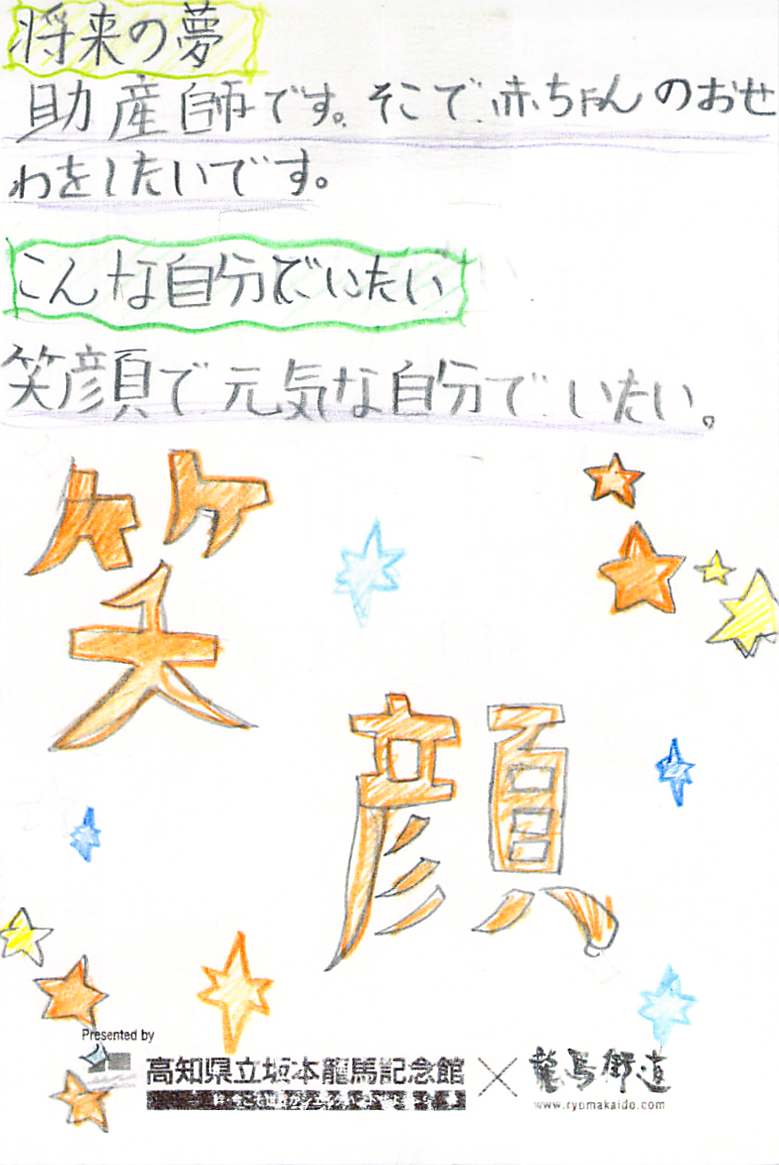 将来の夢
助産師です。そこで赤ちゃんのおせ
わをしたいです。
こんな自分でいたい
笑顔で元気な自分でいたい。
笑
顔
Presented by
高知県立坂本龍馬記念館×龍馬街道
www.ryomakaido.com